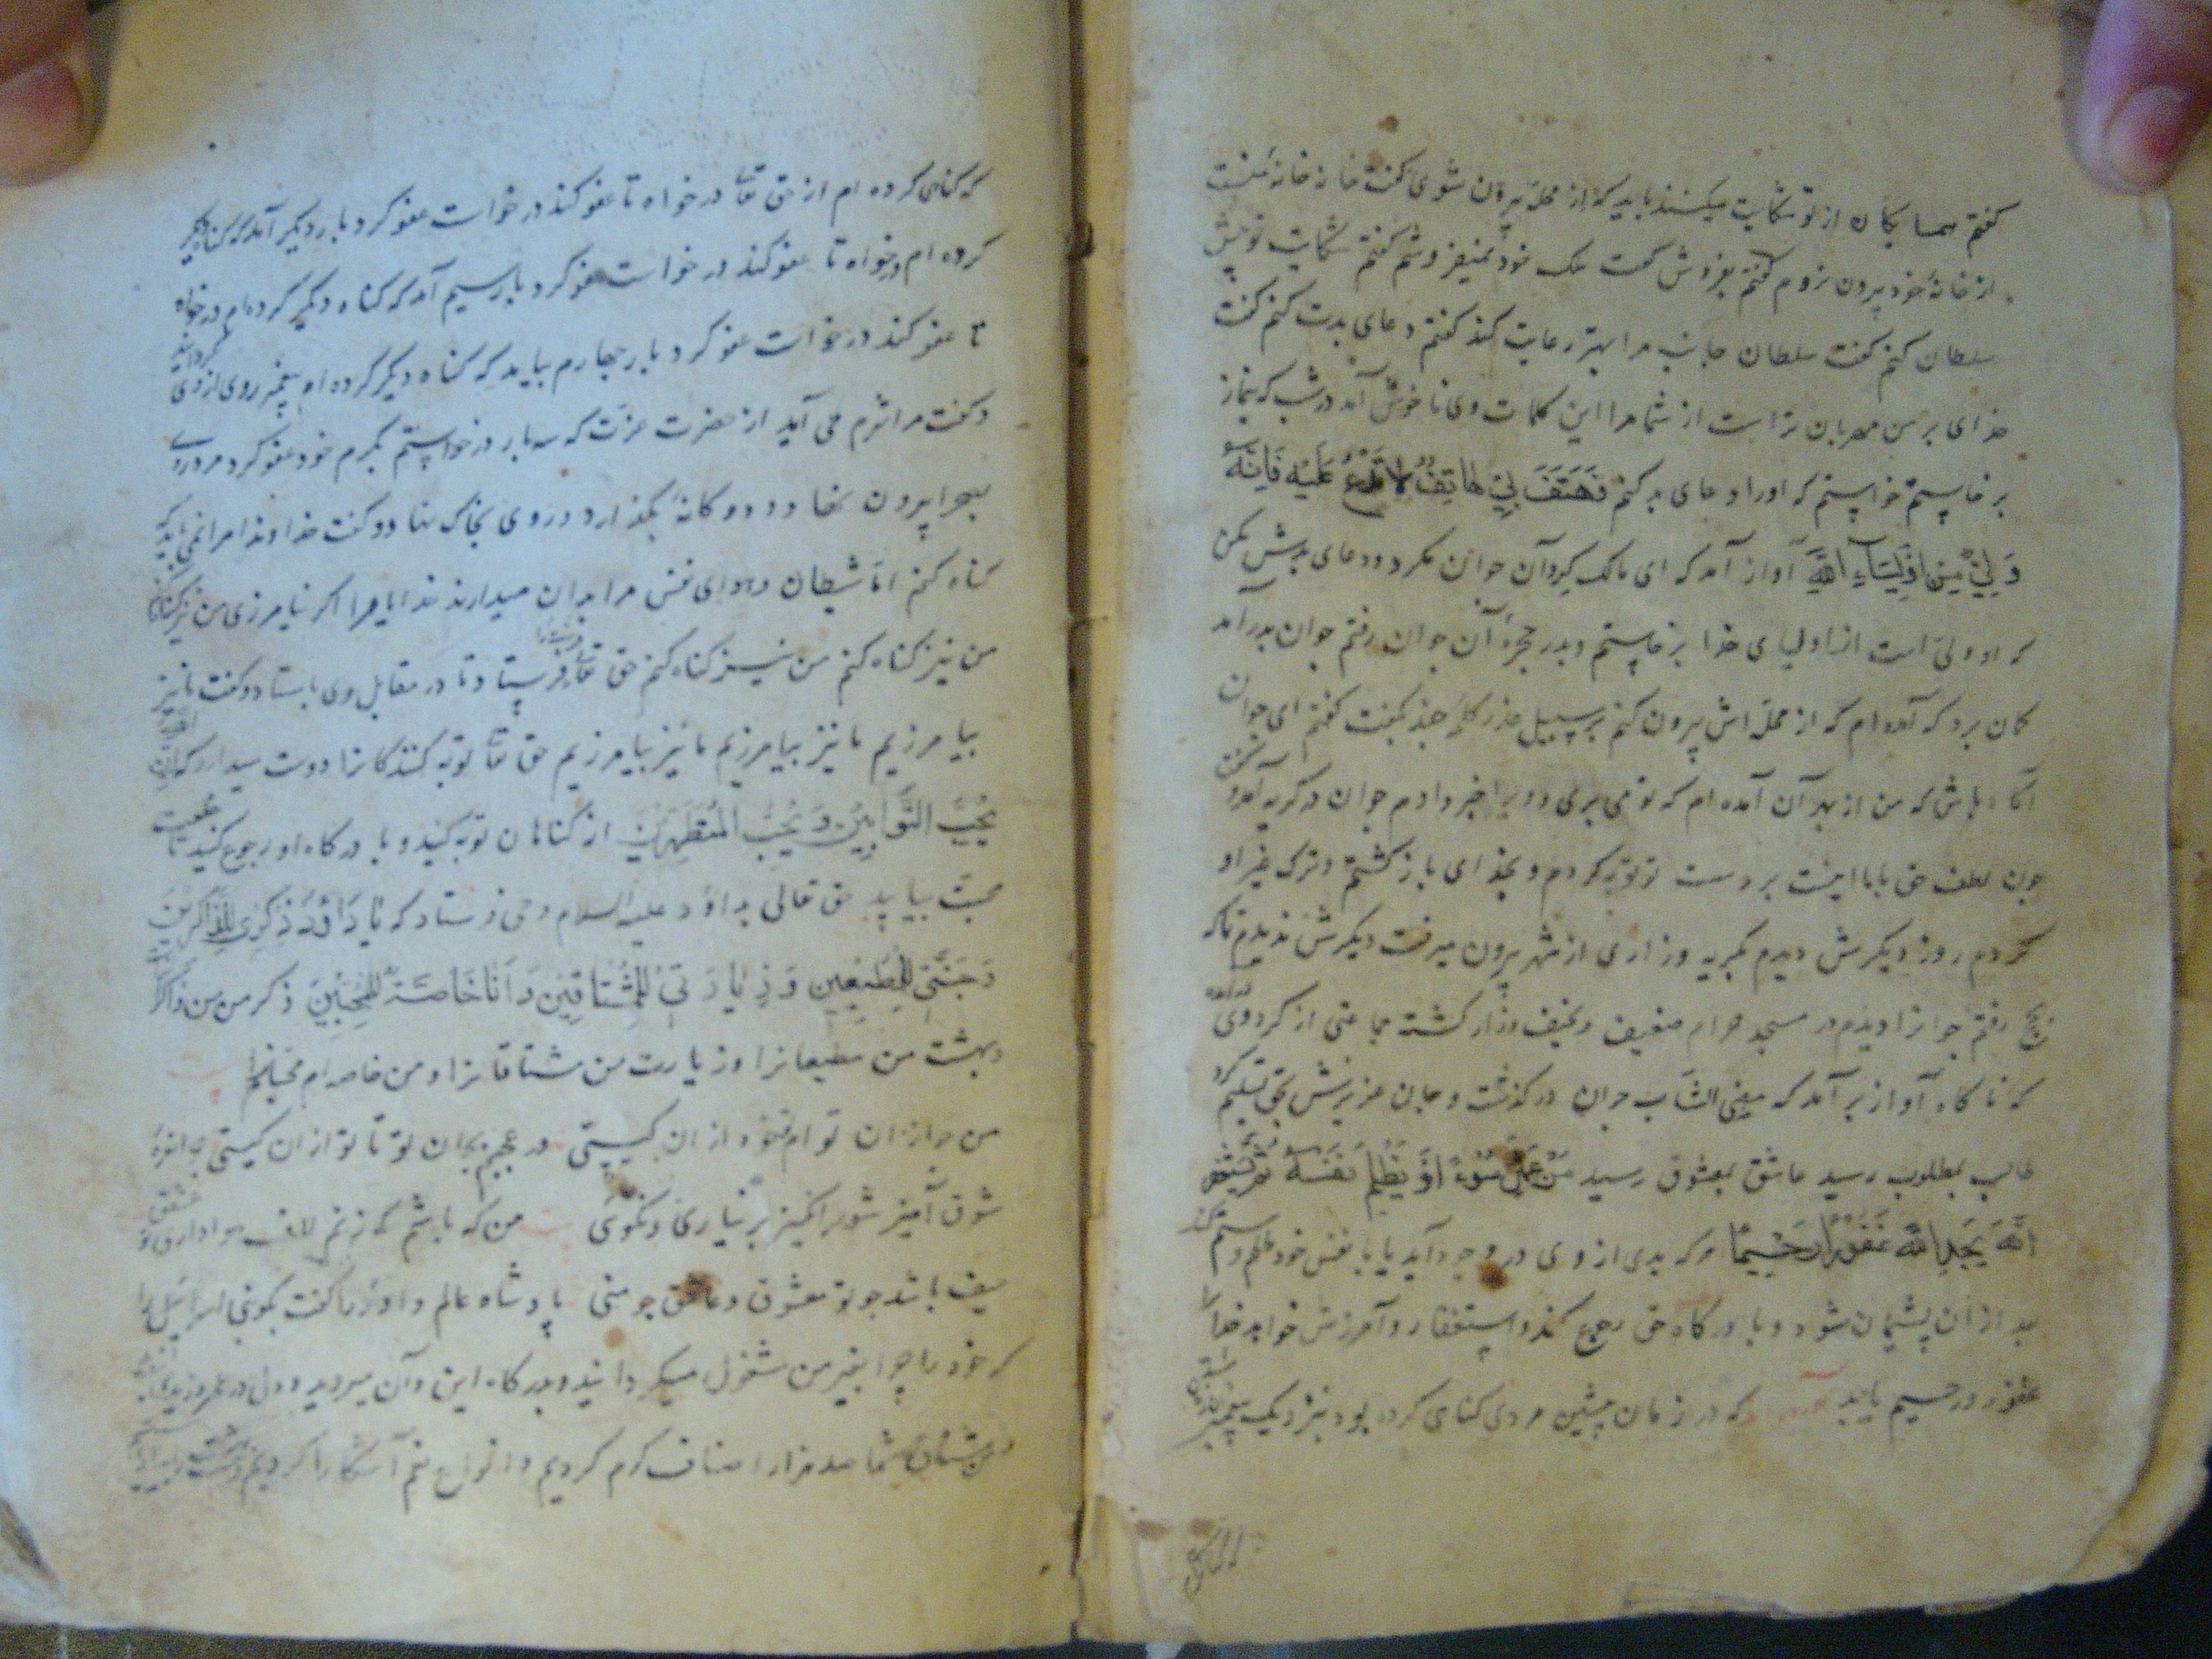 گفتم همسایکان از تو شکایت میکنند باید که از محله بیرون شوی گفت خانه خانهٔ منست
از خانهٔ خود بیرون نروم گفتم بفروش گفت ملک خود نمیفروشم گفتم شکایت تو پیش
سلطان کنم گفت سلطان جانب مرا بهتر رعایت کند گفتم دعای بدت کنم گفت
خدای بر من مهربان تر است از شما مرا این کلمات وی ناخوش آمد در شب که بنماز
برخاستم خواستم که او را دعای بد کنم فَهَتَفَ بِیْ هَاتِفٌ لَا تَدْعُ عَلَیْهِ فَاِنَّهُ
وَلِیٌّ مِنْ اَوْلِیَاءِ اللّٰهِ آواز آمد که ای مالک کرد آن جوان مکرد و دعای بدش مکن
که او ولی است از اولیای خدا برخاستم و بدر حجرهٔ آن جوان رفتم جوان بدر آمد
کمان برد که آمده ام که از محله اش بیرون کنم بر سبیل عذر کلمهٔ چند بگفت گفتم ای جوان
آگاه باش که من از بهر آن آمده ام که تو می بری و ویرا خبر دادم جوان در گریه آمد و گفت
چون لطف حق با ما اینست بر دست تو توبه کردم و بخدای باز گشتم و ترک غیر او
کردم روز دیگرش دیدم بگریه و زاری از شهر بیرون میرفت دیگرش ندیدم تا که
بحج رفتم جوانرا دیدم در مسجد حرام ضعیف و نحیف و زار گشته جماعتی از گرد وی در آمده
که ناکاه آواز بر آمد که مضی الشاب جوان در گذشت و جان عزیزش بحق تسلیم کرد
طالب بمطلوب رسید عاشق بمعشوق رسید مَنْ عَمِلَ سُوْءً اَوْ یَظْلِمْ نَفْسَهُ ثُمَّ یَسْتَغْفِرِ
اللّٰهَ یَجِدِ اللّٰهَ غَفُوْرًا رَحِیْمًا هر که بدی از وی در وجود آید یا با نفس خود ظلم و ستم کند
بعد از آن پشیمان شود و با درکاه حق رجوع کند و استغفار و آمرزش خواهد خدا را
غفور و رحیم یابد که در زمان پیشین مردی گناهی کرده بود بنزدیک پیغمبر
که گناهی کرده ام از حق تعا در خواه تا عفو کند در خواست عفو کرد بار دیگر آمد که گناه دیگر
کرده ام در خواه تا عفو کند در خواست عفو کرد بار سیم آمد که گناه دیگر کرده ام در خواه
تا عفو کند در خواست عفو کرد بار چهارم بیامد که گناه دیگر کرده ام پیغمبر روی از وی گردانید
و گفت مرا شرم می آید از حضرت عزت که سه بار در خواستم بکرم خود عفو کرد مرد روی
بصحرا بیرون نهاد و دوکانهٔ بگذارد و روی بخاک نهاد و گفت خداوندا مرا نمی باید که
گناه کنم اما شیطان و هوای نفس مرا بدان میدارند خدایا مرا اگر نیامرزی من نیز گناه کنم
من نیز گناه کنم من نیز گناه کنم حق تعا فرشته را فرستاد تا در مقابل وی بایستاد و گفت ما نیز
بیامرزیم ما نیز بیامرزیم ما نیز بیامرزیم حق تعا توبه کنندکانرا دوست میدارد که اِنَّ اللّٰهَ
یُحِبُّ التَّوَّابِیْنَ وَ یُحِبُّ الْمُتَطَهِّرِیْنَ از گناهان توبه کنید و با درکاه او رجوع کنید تا خلعت
محبت بیابید حق تعالی بداؤد علیه السلام وحی فرستاد که یَا دَاوُدُ ذِکْرِیْ لِلذَّاکِرِیْنَ
وَ جَنَّتِیْ لِلْمُطِیْعِیْنَ وَ زِیَارَتِیْ لِلْمُشْتَاقِیْنَ وَ اَنَا خَاصَّةٌ لِلْمُحِبِّیْنَ ذکر من من ذاکر
و بهشت من مطیعانرا و زیارت من مشتاقانرا و من خاصه ام محبانرا
من از آن تو ام تو خود از آن کیستی در عجبم بجان تو تا تو از آن کیستی
شوق آمیز شور انکیز بر نیاری و نکوئی من که باشم که زنم لاف هواداری تو
حیف باشد چو تو معشوق و عاشق چو منی پادشاه عالم داود را گفت بگو بنی اسرائیل را
که خود را چرا بغیر من مشغول میکردانید و بدرکاه این و آن میروید و دل در عمرو زید
من شما صد هزار اصناف کرم کردیم و انواع نعم آشکارا کردیم